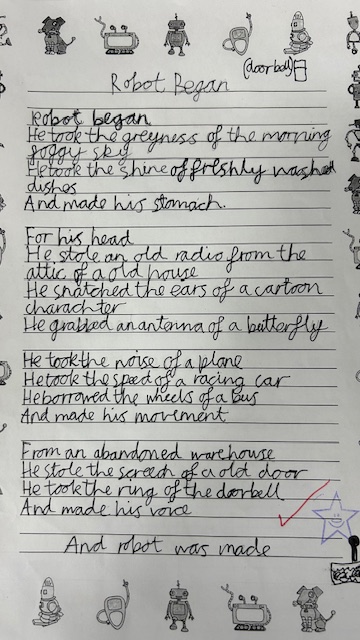 (door bell)
Robot Began
Robot began
He took the greyness of the morning
foggy sky
He took the shine of freshly washed
dishes
And made his stomach.
For his head
He stole an old radio from the
attic of a old house
He snatched the ears of a cartoon
charachter
He grabbed an antenna of a butterfly
He took the noise of a plane
He took the speed of a racing car
He borrowed the wheels of a bus
And made his movement
From an abandoned warehouse
He stole the screech of a old door
He took the ring of the doorbell
And made his voice
And robot was made